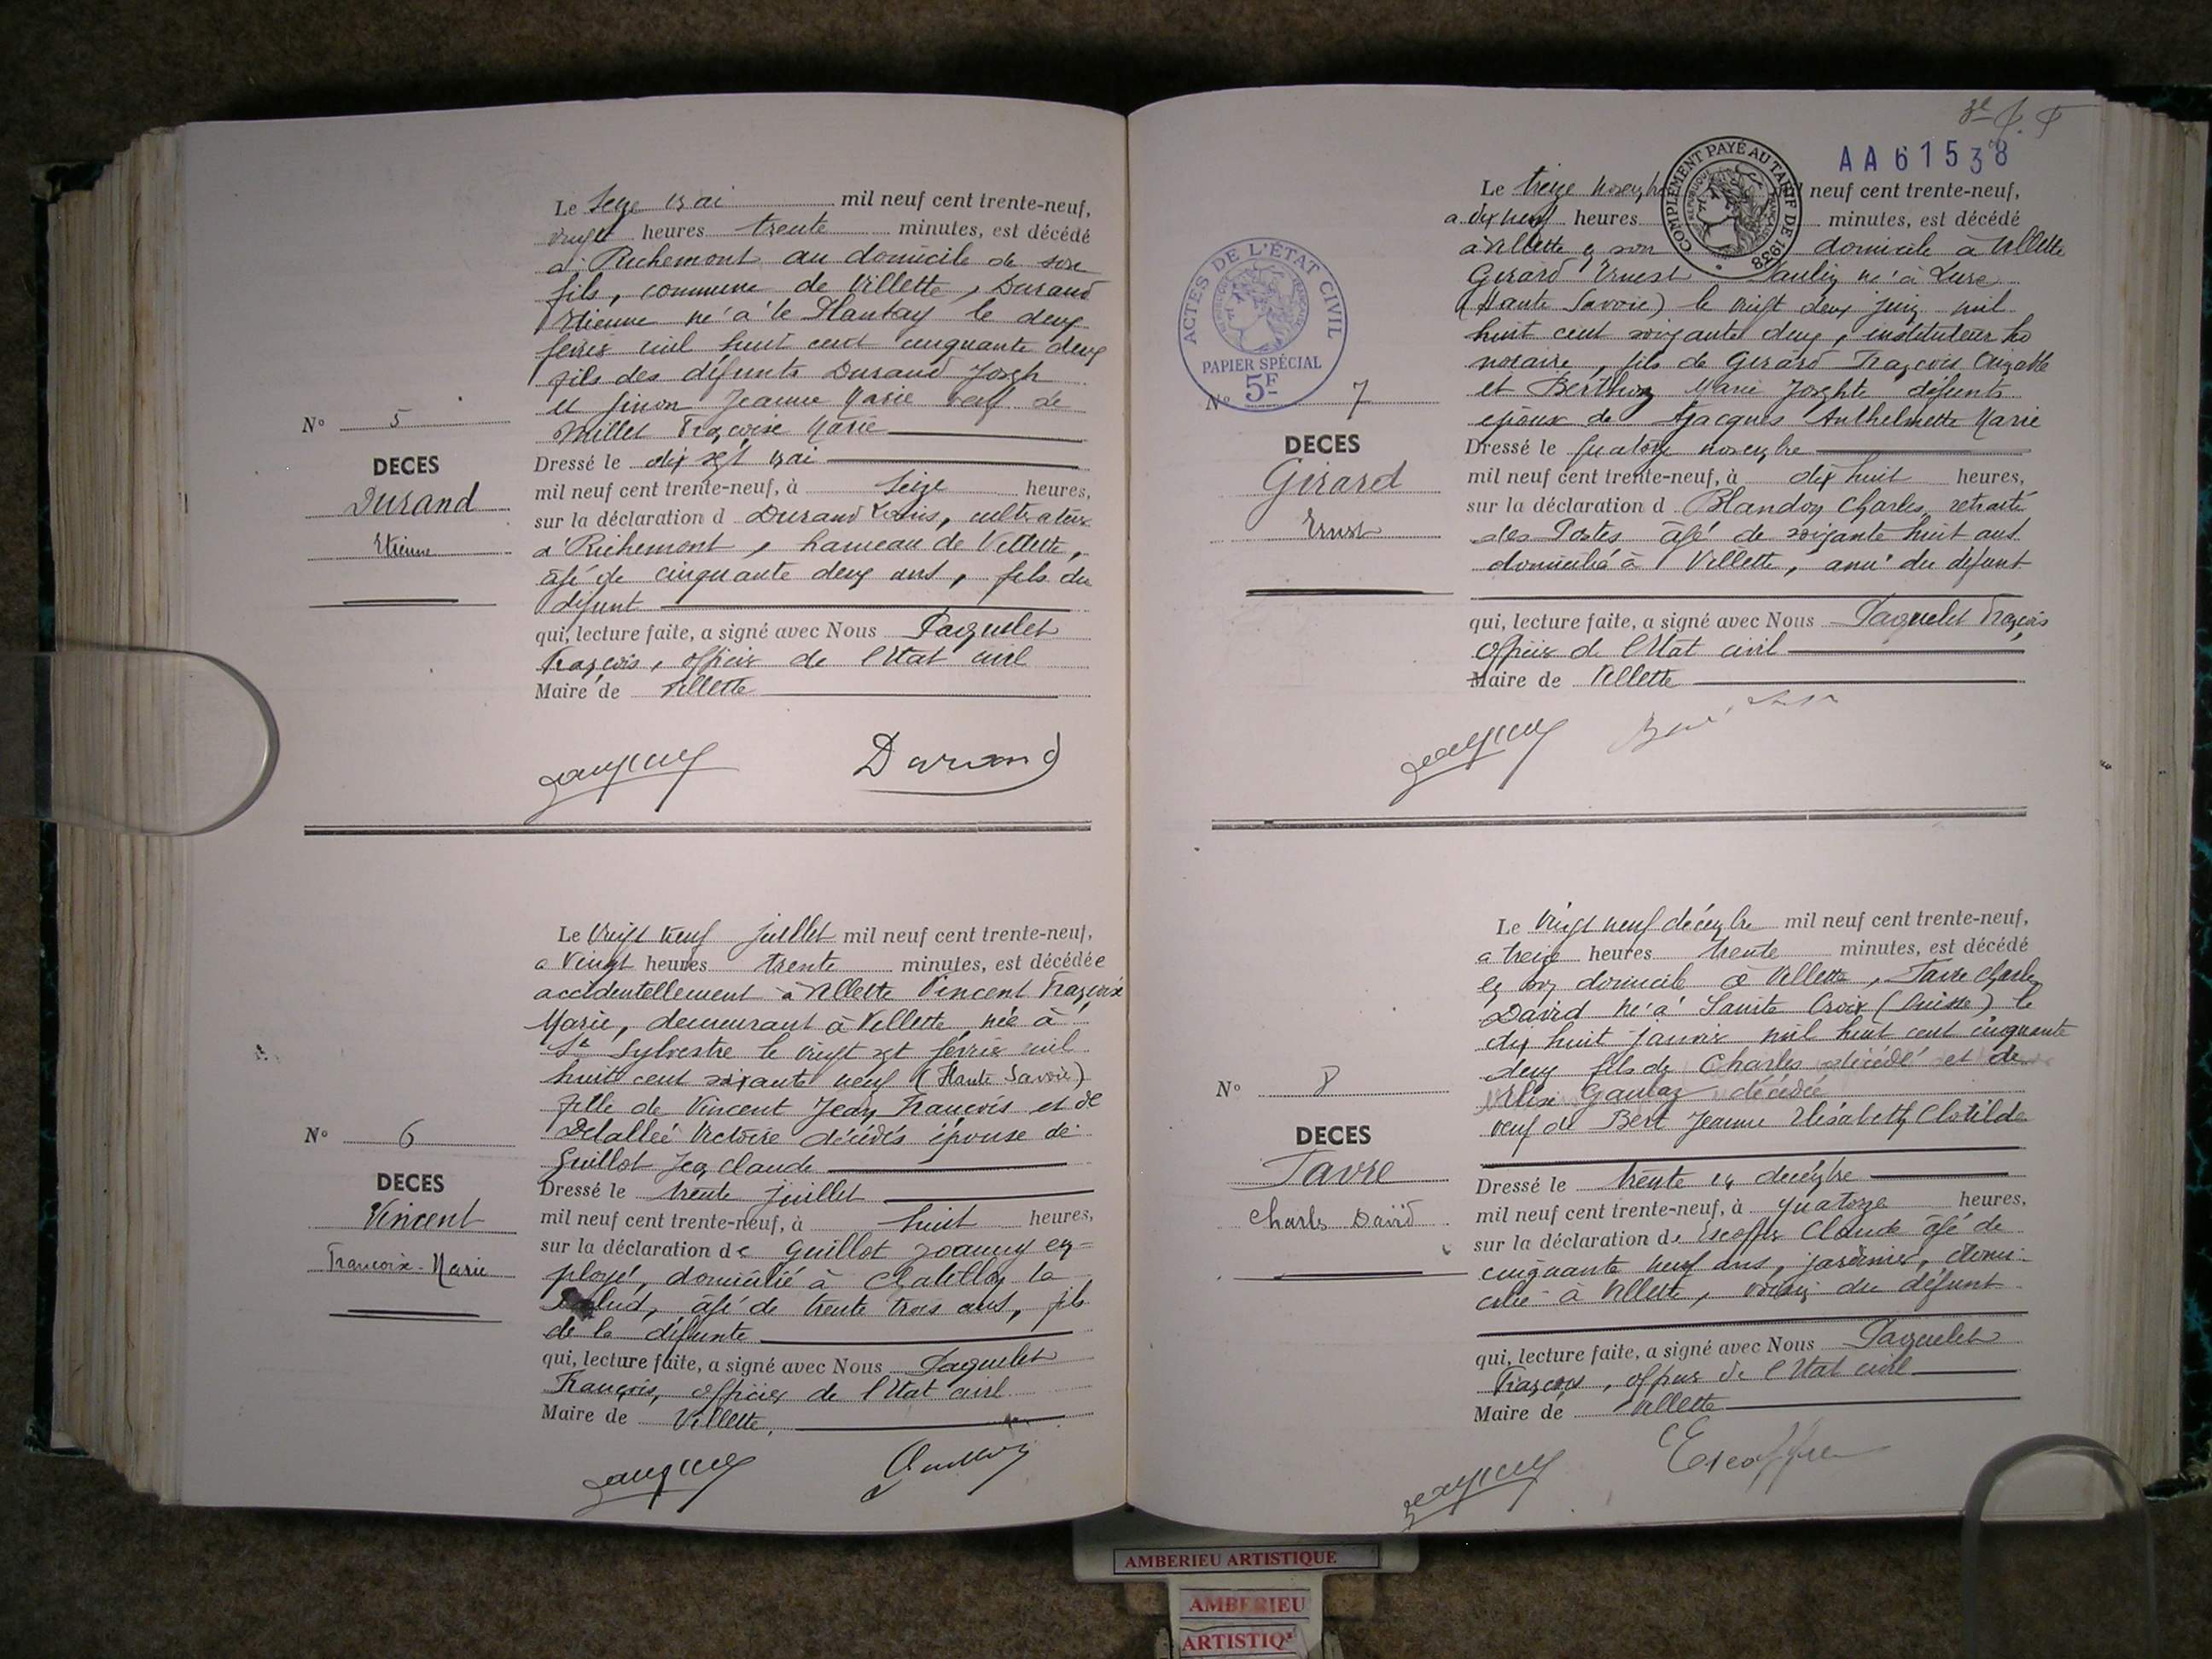 Le seize mai mil neuf cent trente-neuf,
vingt heures trente minutes, est décédé
à Richemont au domicile de son
fils, commune de Villette, Durand
Etienne né à le Plantay le deux
février mil huit cent cinquante deux
fils des défunts Durand Joseph
et Jeanne Marie veuf de
Millet Françoise Marie
N° 5
DECES
Durand
Etienne
Dressé le dix sept mai
mil neuf cent trente-neuf, à seize heures,
sur la déclaration d Durand Louis, cultivateur
à Richemont, hameau de Villette,
âgé de cinquante deux ans, fils du
défunt
qui, lecture faite, a signé avec Nous Paquelet
François, officier de l'Etat civil
Maire de Villette
Durand
Le vingt neuf juillet mil neuf cent trente-neuf,
a vingt heures trente minutes, est décédée
accidentellement à Villette Vincent Françoise
Marie, demeurant à Villette, née à
St Sylvestre le vingt sept février mil
huit cent soixante neuf (Haute Savoie)
fille de Vincent Jean François et de
Delallée Victoire décédés épouse de
Guillot Jean Claude
N° 6
DECES
Vincent
Françoise-Marie
Dressé le trente juillet
mil neuf cent trente-neuf, à huit heures,
sur la déclaration de Guillot Joanny em-
ployé, domicilié à Chatillon la
Palud, âgé de trente trois ans, fils
de la défunte
qui, lecture faite, a signé avec Nous Paquelet
François, officier de l'Etat civil
Maire de Villette,
3e
AA61538
COMPLEMENT PAYÉ AU TARIF DE 1938
REPUBLIQUE FRANÇAISE
Le treize novembre mil neuf cent trente-neuf,
a dix neuf heures minutes, est décédé
à Villette en son domicile à Villette
Girard Ernest Paulin né à
(Haute Savoie) le vingt deux juin mil
huit cent soixante deux, instituteur ho
noraire, fils de Girard François
et Marie Josephte défunts
époux de Anthelmette Marie
ACTES DE L'ÉTAT CIVIL
PAPIER SPÉCIAL
5F
N° 7
DECES
Girard
Ernest
Dressé le quatorze novembre
mil neuf cent trente-neuf, à dix huit heures,
sur la déclaration d Blandon Charles, retraité
des Postes âgé de soixante huit ans
domicilié à Villette, ami du défunt
qui, lecture faite, a signé avec Nous Paquelet François
Officier de l'Etat civil
Maire de Villette
Le vingt neuf décembre mil neuf cent trente-neuf,
a treize heures trente minutes, est décédé
en son domicile à Villette, Favre Charles
David né à Sainte Croix (Suisse) le
dix huit janvier mil huit cent cinquante
deux fils de Charles décédé et de
Elise décédée
veuf de Bert Jeanne Elisabeth Clotilde
N° 8
DECES
Favre
Charles David
Dressé le trente un décembre
mil neuf cent trente-neuf, à quatorze heures,
sur la déclaration de Escoffier Claude âgé de
cinquante neuf ans, jardinier, domi-
cilié à Villette, voisin du défunt
qui, lecture faite, a signé avec Nous Paquelet
François, officier de l'Etat civil
Maire de Villette
AMBERIEU ARTISTIQUE
AMBERIEU
ARTISTIQ